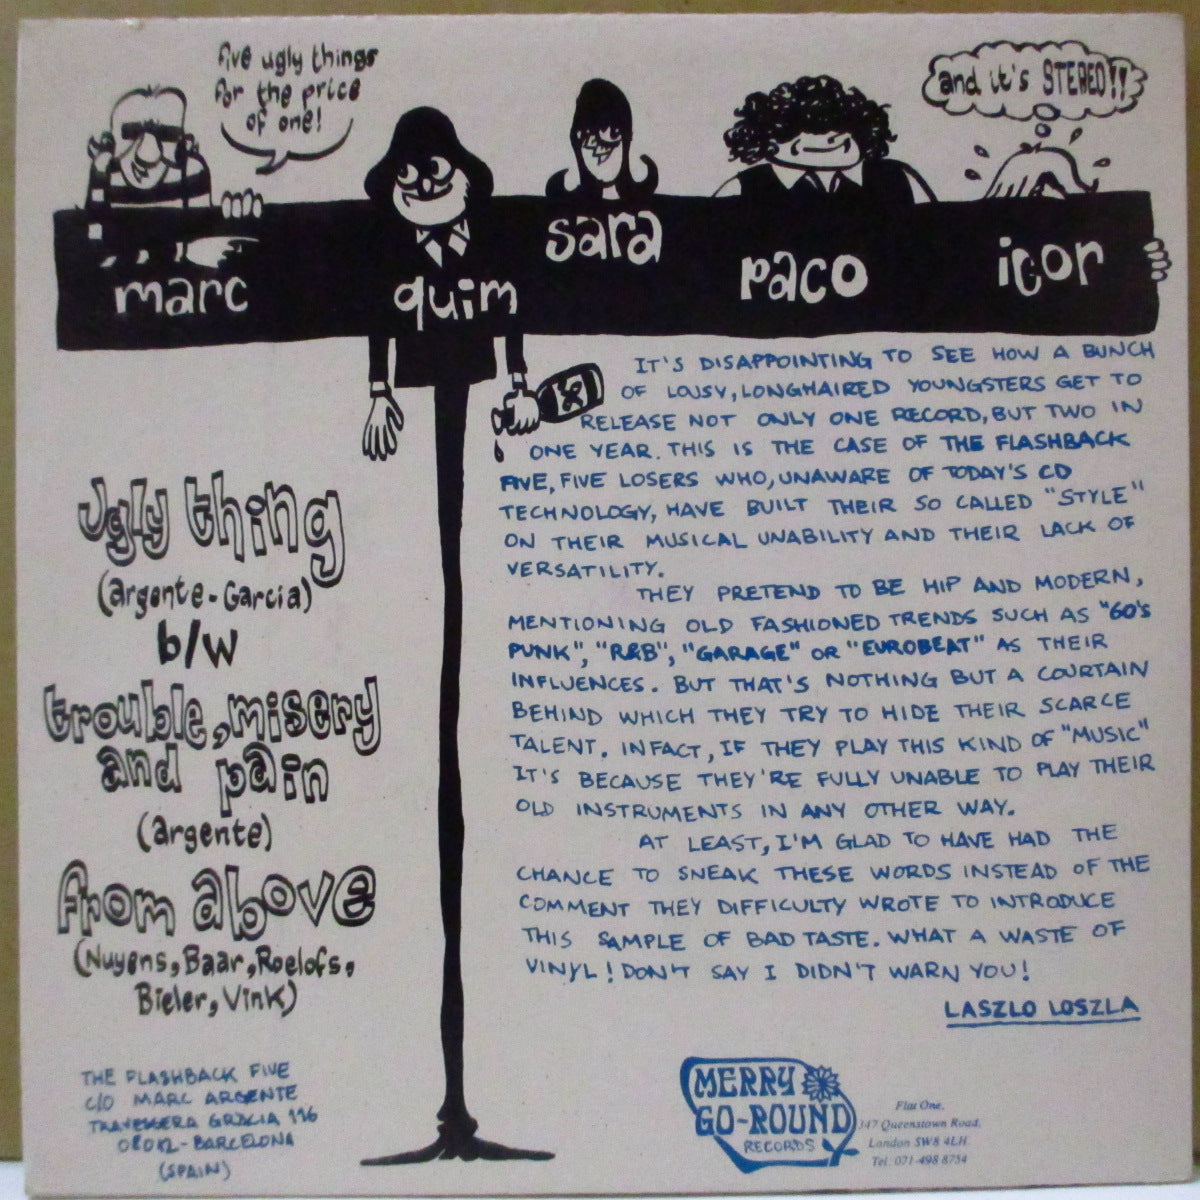 five ugly things
for the price
of one!
and it's STEREO!!
marc
quim
sara
paco
igor
IT'S DISAPPOINTING TO SEE HOW A BUNCH
OF LOUSY, LONGHAIRED YOUNGSTERS GET TO
RELEASE NOT ONLY ONE RECORD, BUT TWO IN
ONE YEAR. THIS IS THE CASE OF THE FLASHBACK
FIVE, FIVE LOSERS WHO, UNAWARE OF TODAY'S CD
TECHNOLOGY, HAVE BUILT THEIR SO CALLED "STYLE"
ON THEIR MUSICAL UNABILITY AND THEIR LACK OF
VERSATILITY.
THEY PRETEND TO BE HIP AND MODERN,
MENTIONING OLD FASHIONED TRENDS SUCH AS "60's
PUNK", "R&B", "GARAGE" OR "EUROBEAT" AS THEIR
INFLUENCES. BUT THAT'S NOTHING BUT A COURTAIN
BEHIND WHICH THEY TRY TO HIDE THEIR SCARCE
TALENT. INFACT, IF THEY PLAY THIS KIND OF "MUSIC"
IT'S BECAUSE THEY'RE FULLY UNABLE TO PLAY THEIR
OLD INSTRUMENTS IN ANY OTHER WAY.
AT LEAST, I'M GLAD TO HAVE HAD THE
CHANCE TO SNEAK THESE WORDS INSTEAD OF THE
COMMENT THEY DIFFICULTY WROTE TO INTRODUCE
THIS SAMPLE OF BAD TASTE. WHAT A WASTE OF
VINYL! DON'T SAY I DIDN'T WARN YOU!
LASZLO LOSZLA
ugly thing
(argente-Garcia)
b/w
trouble, misery
and pain
(argente)
from above
(Nuyens, Baar, Roelofs,
Bieler, Vink)
THE FLASHBACK FIVE
C/O MARC ARGENTE
TRAVESSERA GRÀCIA 116
08012-BARCELONA
(SPAIN)
MERRY
GO-ROUND
RECORDS
Flat One,
347 Queenstown Road,
London SW8 4LH.
Tel: 071-498 8754